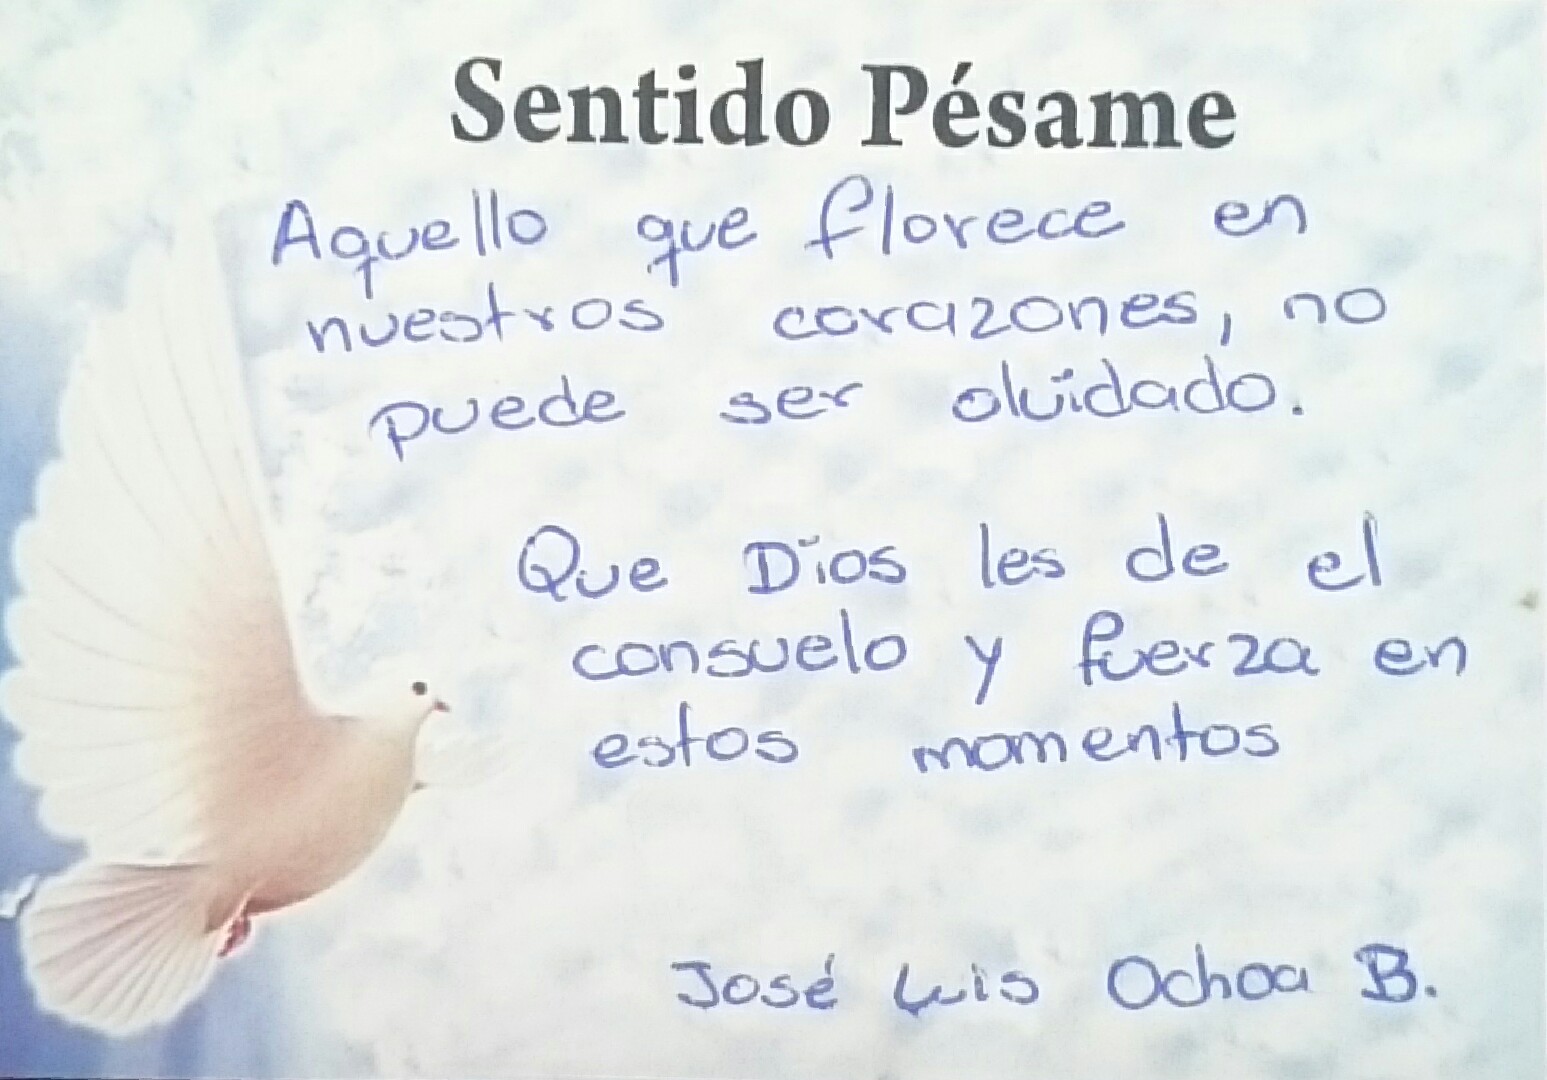 Sentido Pésame
Aquello que florece en
nuestros corazones, no
puede ser olvidado.
Que Dios les de el
consuelo y fuerza en
estos momentos
José Luis Ochoa B.